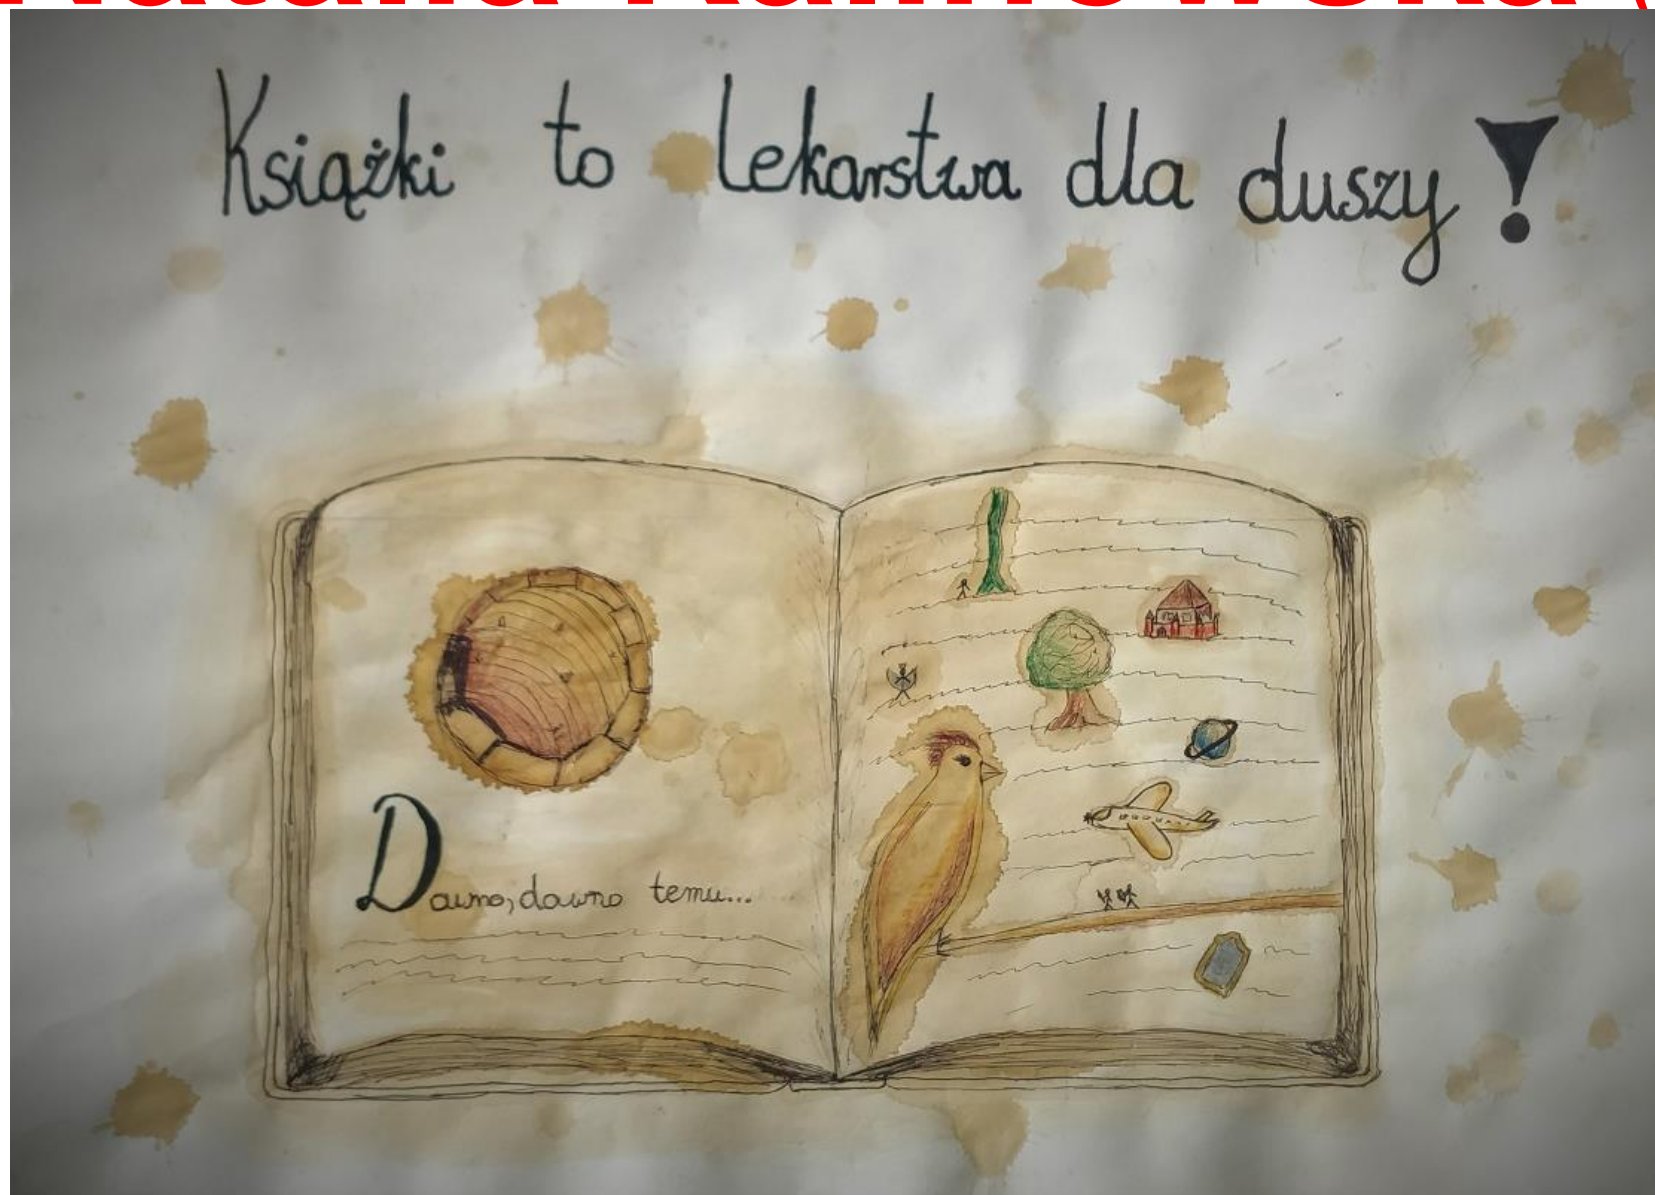 Książki to lekarstwa dla duszy!
Dawno, dawno temu...